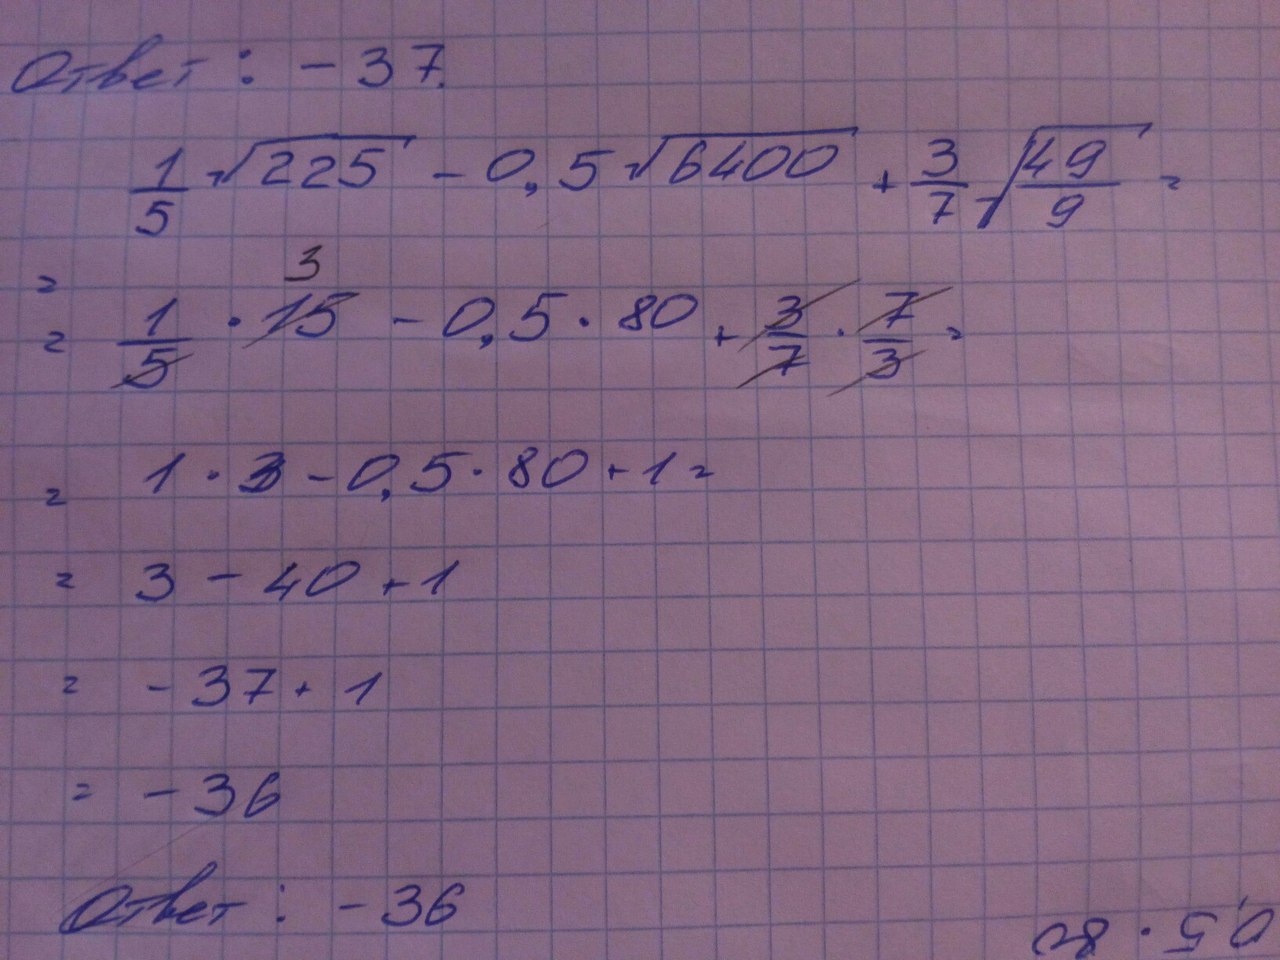 Ответ: - 37.
1/5 √225 - 0,5 √6400 + 3/7 √49/9 =
=
= 1/5 · 15 3 - 0,5 · 80 + 3/7 · 7/3 =
= 1 · 3 - 0,5 · 80 + 1 =
= 3 - 40 + 1
= - 37 + 1
= - 36
Ответ: - 36
0,5 · 80